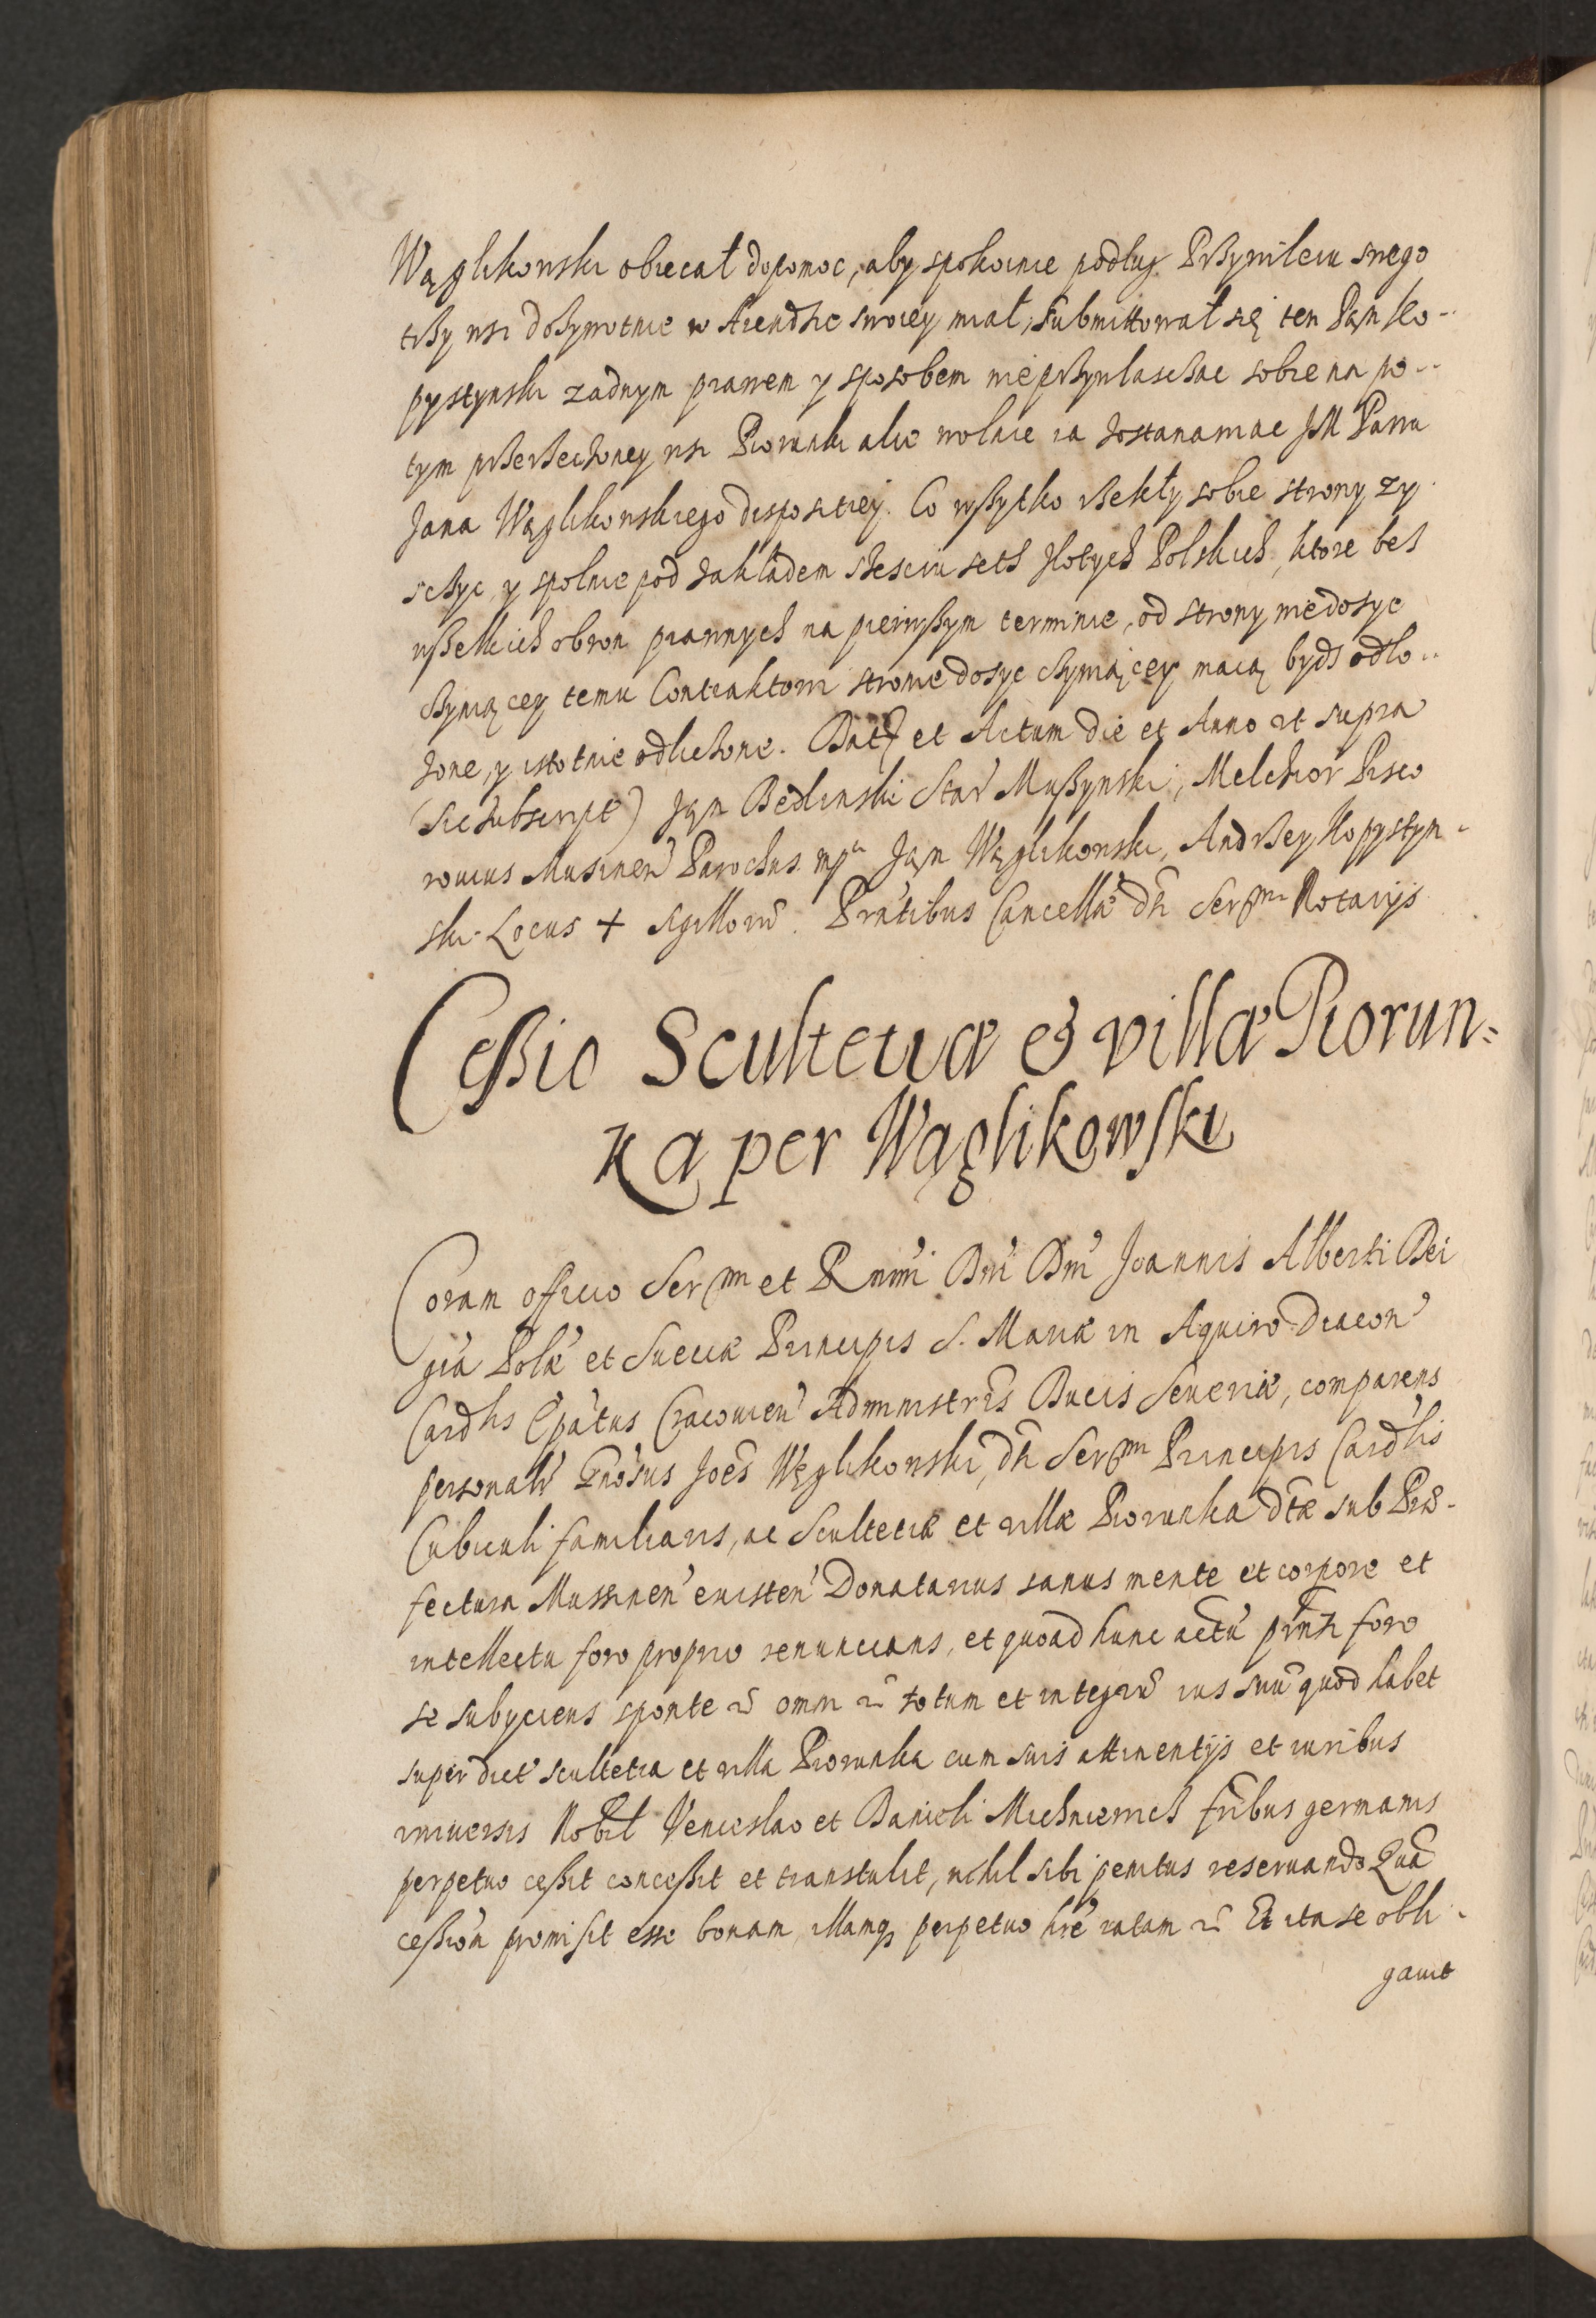 Wąglikowski obiecał dopomoc, aby spokoinie podług Przywileiu swego
trzy wsi dożywotnie w Arendzie swoiey miał, submittował się ten Pąn Ko-
pystynski zadnym prawem y sposobem nieprzywlaszczac sobie na po-
tym przerzeczoney wsi Piorunki alie wolnie ia zostanawiac JM Panu
Jana Wąglikowskiego dispositiey. Co wszytko rzekly sobie strony zy-
sczyc, y spolnie pod zakładem szesciu seth złotych Polskich, ktore bes
wszelkich obron prawnych na pierwszym terminie, od strony niedosyc
czyniącey temu Contraktowi stronie dosyc czyniącey maią bydz odło-
zone, y istotnie odliczone. Datt et Actum die et Anno ut supra
(Sic subscript) Jąn Bedlinski Star Muszynski, Melchior Pisco
rouius Musinen Parochus mpa Jąn Wąglikowski, Andrzey Kopystyn-
ski. Locus + sigillorũ. Pratibus Cancellæ dñ Sermi Notarijs
Cessio Scultetiæ & villæ Piorun=
ka per Wąglikowski
Coram officio Sermi et Rmi Dni Dni Joannis Alberti Dei
gia Polæ et Sueciæ Principis S. Mariæ in Aquiro Diacon
Cardlis Epatus Cracouien Administris Ducis Seueriæ, comparens
personalr Gnosus Joes Węglikowski, dñ Sermi Principis Cardlis
Cubiculi familiaris, ac Scultetiæ et villæ Piorunka dtæ sub Præ-
fectura Mussinen existen Donatarius sanus mente et corpore et
intellectu foro proprio renuncians, et quoad hunc actu prnti foro
se subyciens sponte etc omni etc totum et integrũ ius suũ quod habet
super dict scultetia et villa Piorunka cum suis attinentijs et iuribus
uniuersis Nobil Venceslao et Danieli Michniewich fribus germanis
perpetuo cessit concessit et transtulit, nihil sibi penitus reseruando Quã
cession promisit esse bonam, illamq perpetuo hre ratam etc Et ita se obli-
gauit